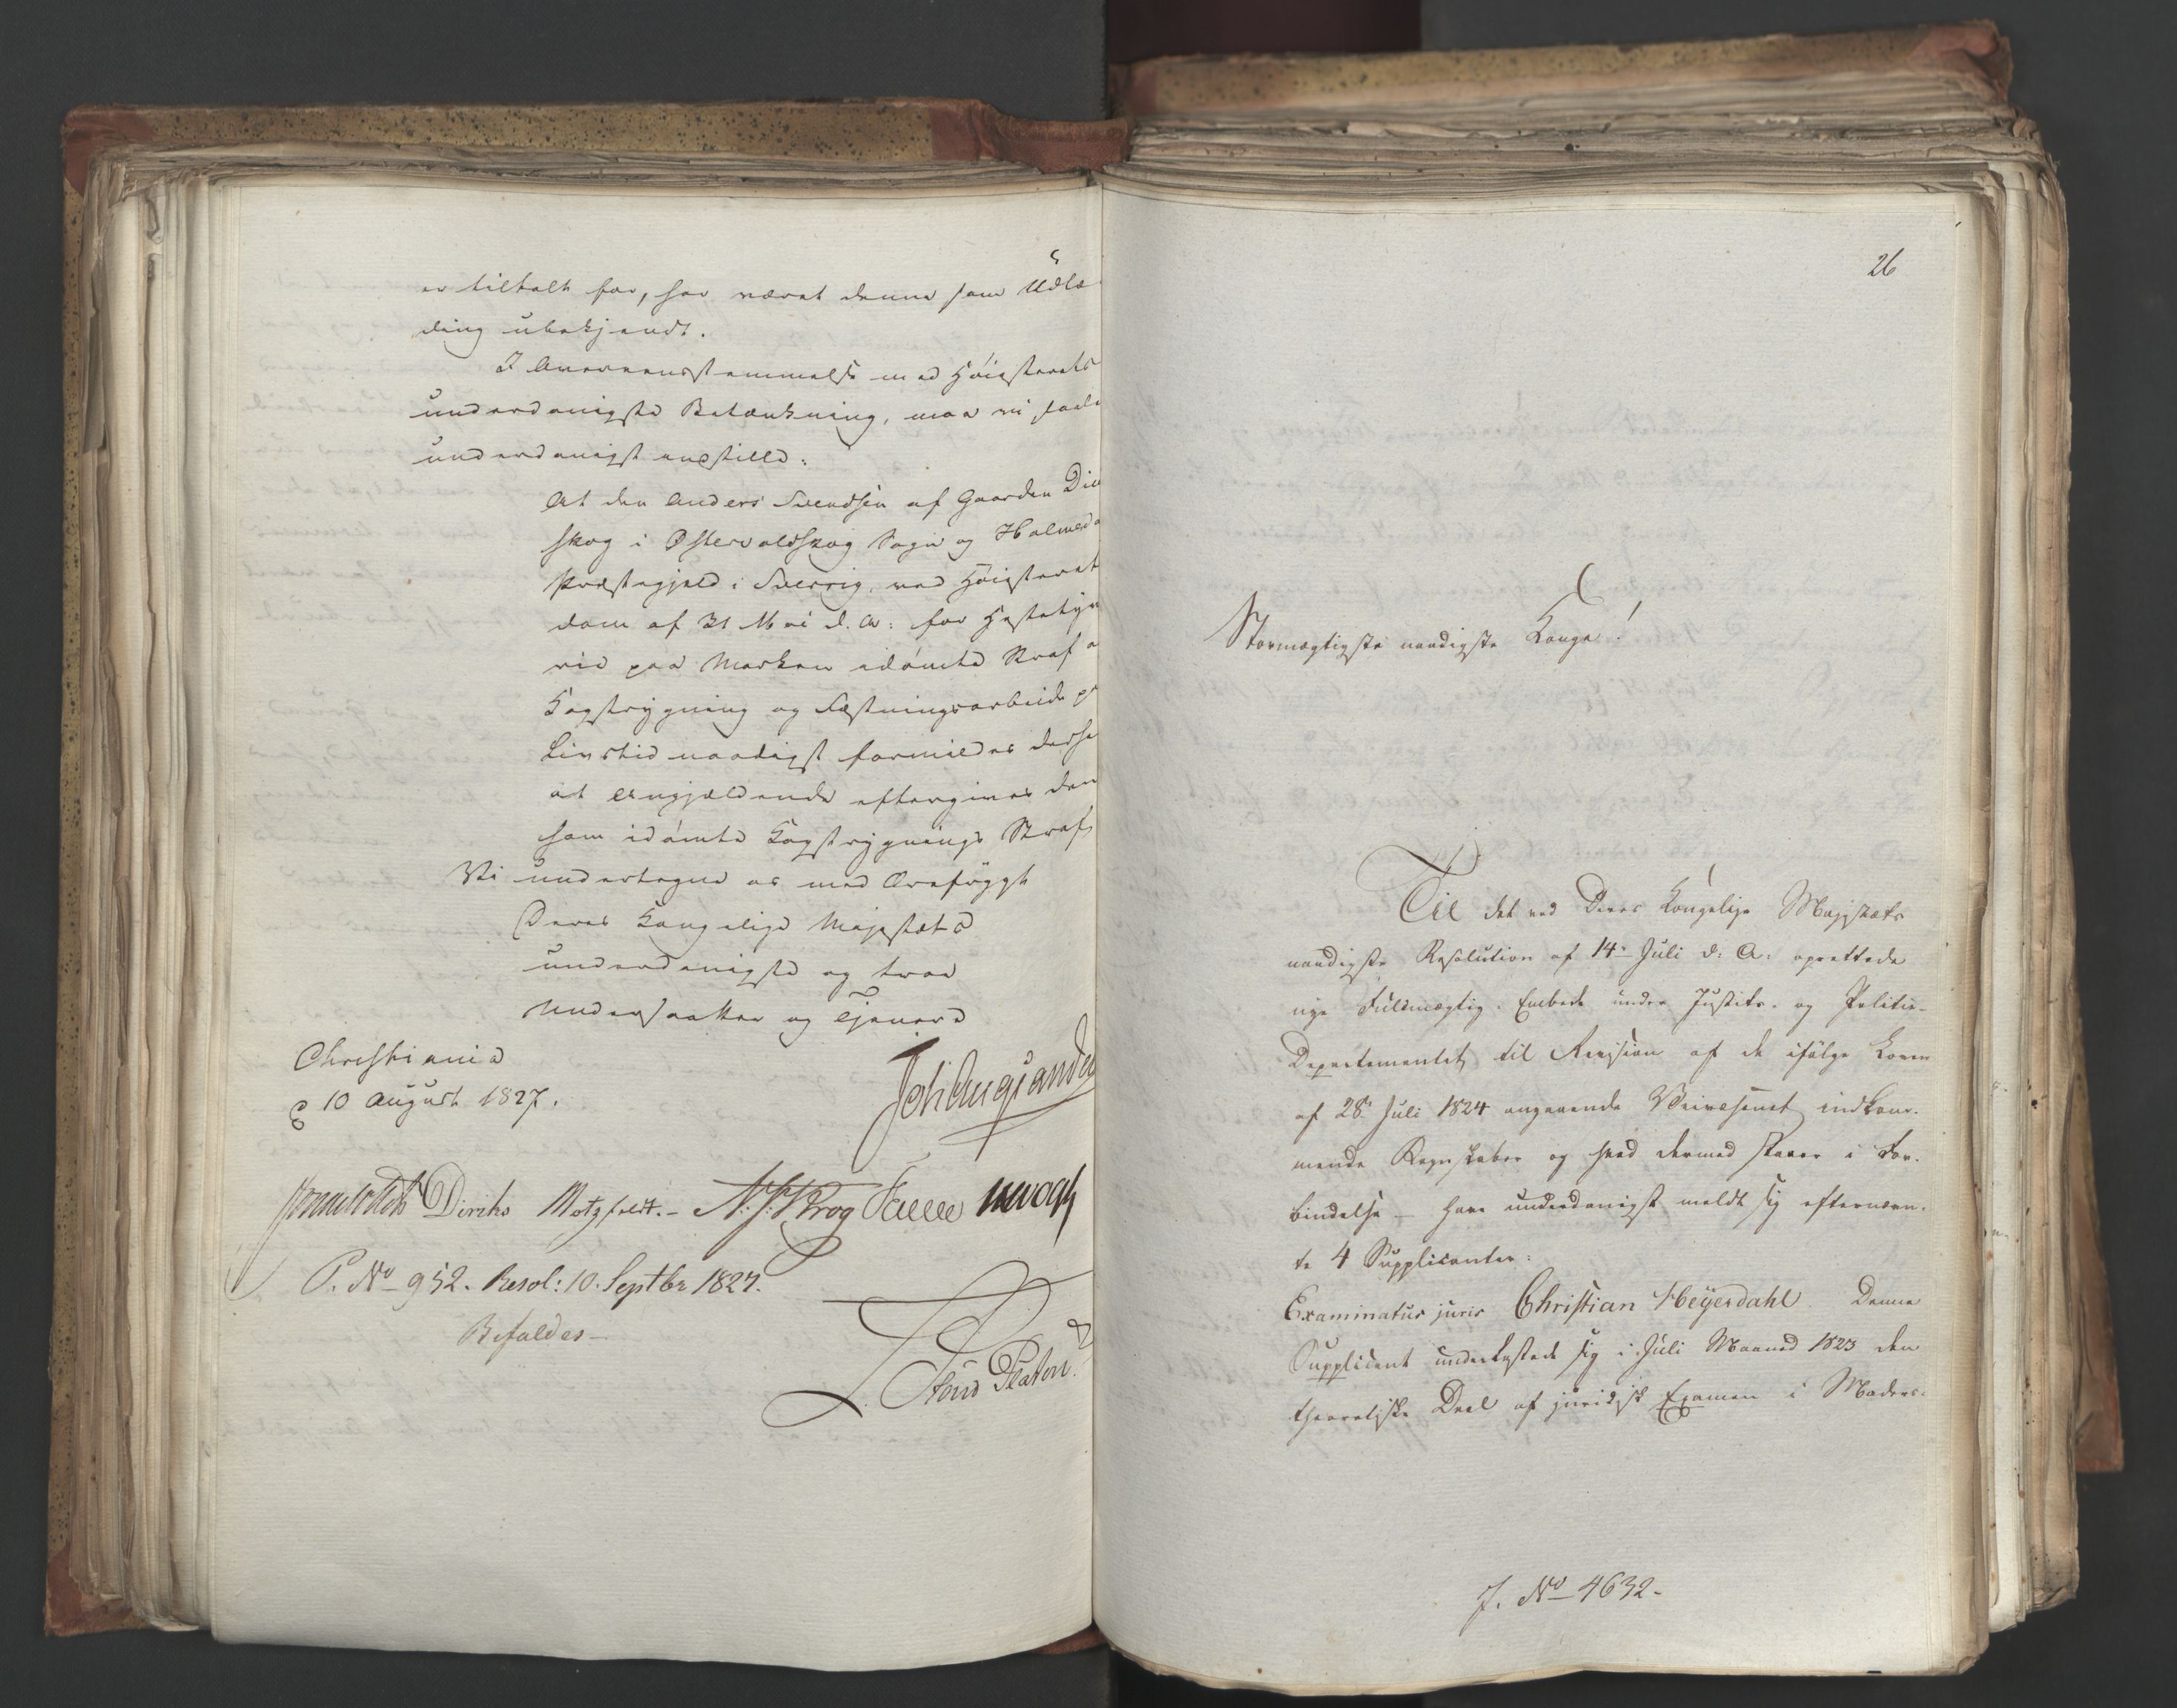 er tiltalt for, har været denne som Udlæ
ding ubekjendt.
I Overeensstemmelse med Höiesterets
underdanigste Betænkning, maa vi saale
underdanigst indstille:
At den Anders Svendsen af Gaarden
skog i Östervaldskog Sogn og Holmeda
Præstegjeld i Sverrig, ved Höiesteret
dom af 31 Mai d. A: for Hestetyv
rie paa Marken idömte Straf a
Kagstrygning og Fæstningsarbeide p
Livstid naadigst formildes derhe
at Angjældende eftergives den
ham idömte Kagstrygnings Straf
Vi undertegne os med Ærefrygt
Deres Kongelige Majestæts
underdanigste og troe
Undersaatter og Tjenere
Christiania
d 10 August 1827.
Diriks Motzfeldt.- Krog
P. No 952. Resol: 10. Septbr 1827.
Bifaldes-
Platou.
26
Stormægtigste naadigste Konge!
Til det ved Deres Kongelige Majestæts
naadigste Resolution af 14de Juli d: A: oprettede
nye Fuldmægtig-Embede under Justits- og Politie-
Departementet til Revision af de ifölge Loven
af 28de Juli 1824 angaaende Veivæsenet indkom-
mende Regnskaber og hvad dermed staaer i For-
bindelse - have underdanigst meldt sig efternævn-
te 4 Supplicanter:
Examinatus juris Christian Heyerdahl. Denne
Supplicant underkastede sig i Juli Maaned 1823 den
theoretiske Deel af juridisk Examen i Moders-
J. No 4632-